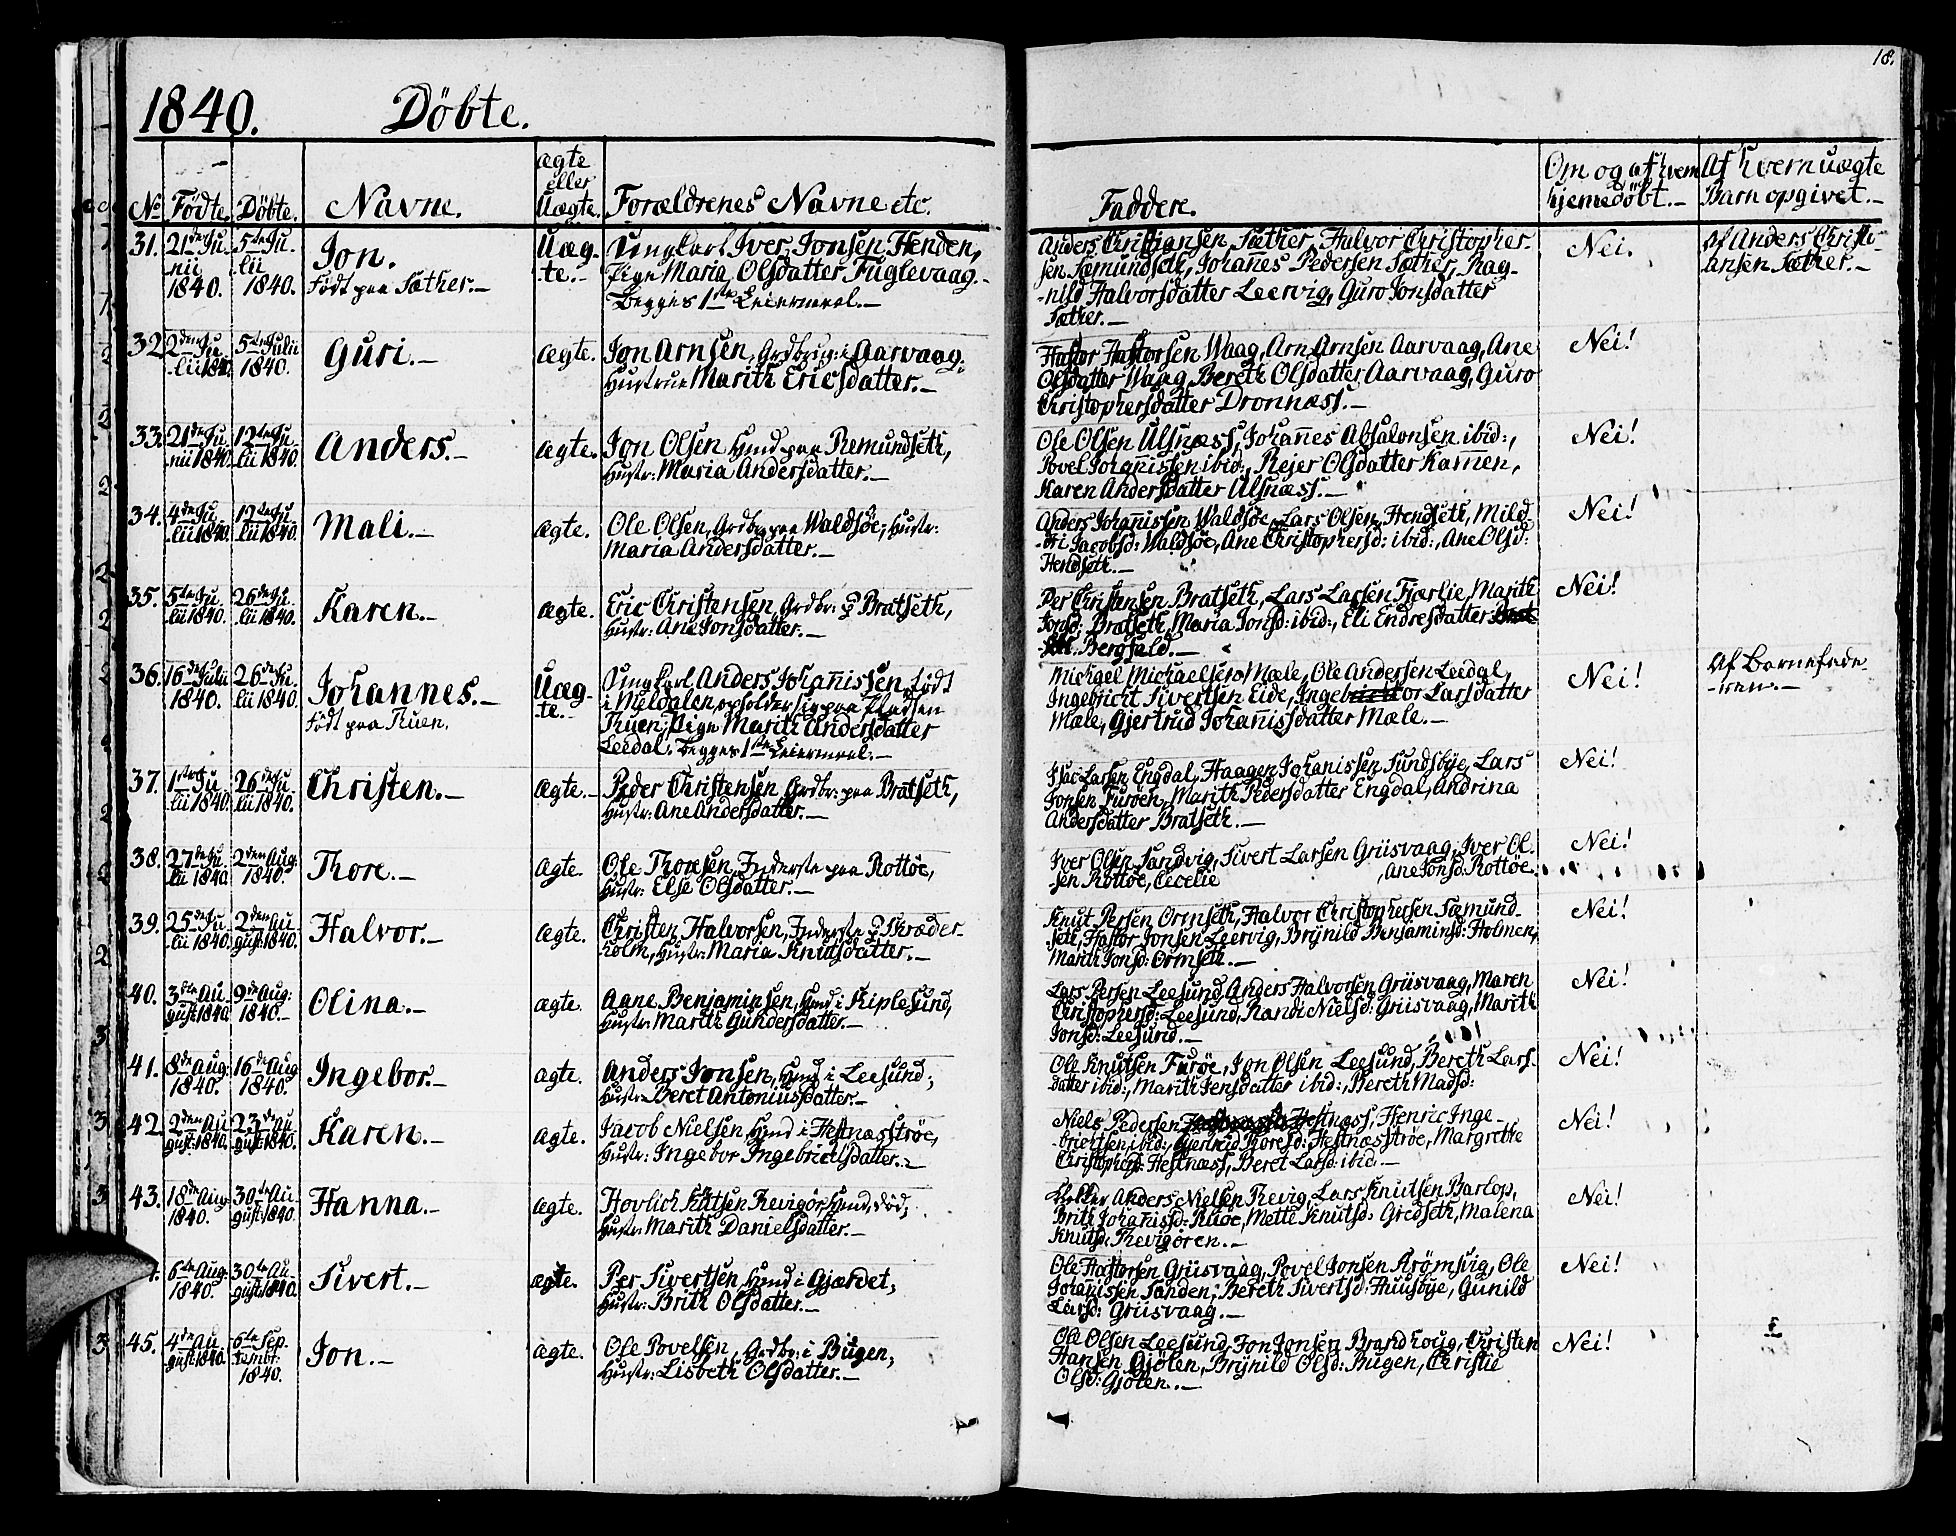 18.
1840. Döbte.
No Födte. Döbte. Navne. ægte eller Uægte. Forældrenes Navne etc. Faddere. Om og af hvem hjemedöbt.- Af hvem uægte Barn opgivet.-
31. 21de Junii 1840. 5te Julii 1840. Jon. Födt paa Sæther.- Uægte.- Ungkarl Iver Jonsen Henden,
Pige Maria Olsdatter Fuglevaag.-
Begges 1ste Leiermaal.-
Anders Christiansen Sæther, Halvor Christopher-
sen Sæmundseth, Johannes Pedersen Sæther, Rag-
-nild Halvorsdatter Leervig, Guro Jonsdatter
Sæther.-
Nei. Af Anders Christi-
ansen Sæther.-
32. 2den Julii 1840. 5te Julii 1840. Guri.- ægte. Jon Arnsen, Grdbrug: i Aarvaag.
Hustrue Marith Ericsdatter.-
Hastor Hastorsen Waag, Arn Arnsen Aarvaag, Ane
Olsdatter Waag, Bereth Olsdatter Aarvaag, Guro
Christophersdatter Dronnæss.-
Nei!
33. 21de Junii 1840. 12te Julii 1840. Anders.- ægte. Jon Olsen Hmd paa Remundseth,
Hustr: Maria Andersdatter.-
Ole Olsen Ulsnæss, Johannes Absalonsen ibid:,
Povel Johannissen ibid:, Rejer Olsdatter Kamen,
Karen Andersdatter Ulsnæss.-
Nei!
34. 4de Julii 1840. 12te Julii 1840. Mali.- ægte. Ole Olsen, Grdbr: paa Waldsöe, Hustr:
Maria Andersdatter.-
Anders Johannissen Waldsöe, Lars Olsen Hendseth, Mild
-dri Jacobsd: Waldsöe, Ane Christophersd: ibid:, Ane Olsd:
Hendseth.-
Nei!
35. 5te Julii 1840. 26de Julii 1840. Karen.- ægte. Eric Christensen, Grdbr: p Bratseth,
Hustr: Ane Jonsdatter.-
Per Christensen Bratseth, Lars Larsen Fjærlie, Marith
Jonsd: Bratseth, Maria Jonsd: ibid:, Eli Endresdatter
Bergfald.-
Nei!
36. 16de Julii 1840. 26de Julii 1840. Johannes.- Födt paa Ruen. Uægte.- Ungkarl Anders Johannissen, Födt
i Meldalen, opholder sig paa Pladsen
Ruen; Pige Marith Andersdatter
Leedal. Begges 1ste Leiermaal.-
Michael Michaelsen Mæle, Ole Andersen Leedal,
Ingebricht Sivertsen Eide, Ingebor Larsdatter
Mæle, Gjertrud Johannisdatter Mæle.-
Nei! Af Barnefade-
-ren.-
37. 1ste Julii 1840. 26de Julii 1840. Christen.- ægte.- Peder Christensen Grdbr: paa Bratseth,
Hustr: Ane Andersdatter.-
Isac Larsen Engdal, Haagen Johanissen Sundsbye, Lars
Jonsen Furöen, Marith Pedersdatter Engdal, Andrina
Andersdatter Bratseth.-
Nei!
38. 27de Julii 1840. 2den Aug: 1840. Thore.- ægte. Ole Thoresen, Inderste paa Rottöe,
Hustr: Else Olsdatter.-
Iver Olsen Sandvig, Sivert Larsen Griisvaag, Iver Ol-
-sen Rottöe, Cecelie , Ane Jonsd: Rottöe.
Nei!
39. 25de Julii 1840. 2den August: 1840. Halvor.- ægte. Christen Halvorsen, Inderste p Skræder-
holm, Hustr: Maria Knutsdatter.-
Knut Persen Ormseth, Halvor Christophersen Sæmund-
-seth, Hastor Jonsen Leervig, Brynild Benjaminsd: Holmen,
Marith Jonsd: Ormseth.-
Nei!
40. 3die August: 1840. 9de Aug: 1840.- Olina.- ægte. Aane Benjaminsen, Hmd i Kiplesund,
Hustr: Marith Gundersdatter.-
Lars Persen Leesund, Anders Halvorsen Griisvaag, Maren
Christophersd: Leesund, Randi Nielsd: Griisvaag, Marith
Jonsd: Leesund.-
Nei!
41. 8de Aug: 1840. 16de Aug 1840. Ingebor.- ægte. Anders Jonsen, Hmd i Leesund;
Hustr: Beret Antoniusdatter.-
Ole Knutsen Furöe, Jon Olsen Leesund, Bereth Lars-
datter ibid:, Marith Jensdatter ibid:, Bereth Madsd:
Nei!
42. 2den August: 1840. 23de August: 1840. Karen.- ægte. Jacob Nielsen Hmd i Hestnæsströe,
Hustr: Ingebor Ingebrictsdatter.-
Niels Pedersen Hestnæss, Henric Inge-
-brichtsen ibid:, Gjertrud Thoresd: Hestnæsströe, Margrethe
Christophersd: Hestnæss, Beret Larsd: ibid.-
Nei!
43. 18de Aug: 1840. 30te August: 1840. Hanna.- ægte. Hovlich Knutsen Revigör, Hmd, död;
Hustr: Marith Danielsdatter.-
Anders Nielsen Revig, Lars Knutsen Bartop,
Brith Johannisd: Ruöe, Mette Knutsd: Gredseth, Malena
Knutsd: Revigoren.-
Nei!
4. 6te Aug: 1840. 30te August: 1840. Sivert.- ægte. Per Sivertsen, Hmd i Gjærdet,
Hustr: Brith Olsdatter.-
Ole Hastorsen Griisvaag, Povel Jonsen Krömsvig, Ole
Johannissen Sanden, Bereth Sivertsd: Huusbye, Gunild
Larsd: Griisvaag.-
Nei!
45. 4de August: 1840. 6te Septembr: 1840. Jon.- ægte. Ole Povelsen, Grdbr: i Bugen,
Hustr: Lisbeth Olsdatter.-
Ole Olsen Leesund, Jon Jonsen Brandhoug, Christen
Hansen Gjölen, Brynild Olsd: Bugen, Christie
Olsd: Gjölen.-
Nei!